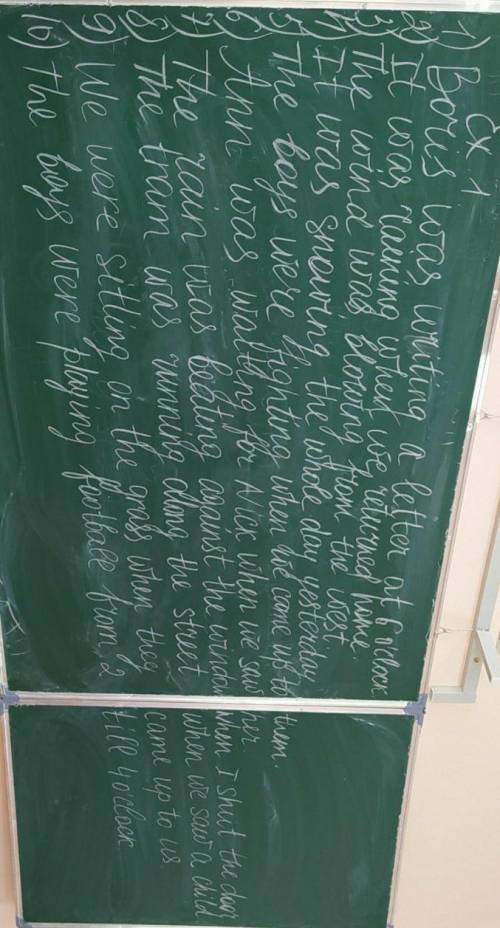 ex 1
1) Boris was writing a letter at 6 o'clock
2) It was raining when we returned home
3) The wind was blowing from the west
4) It was snowing the whole day yesterday
5) The boys were fighting when we came up to them.
6) Ann was waiting for Nick when we saw her
7) The rain was beating against the window when I shut the door
8) The tram was running along the street when we saw a child
9) We were sitting on the grass when they came up to us
10) The boys were playing football from 2 till 4 o'clock